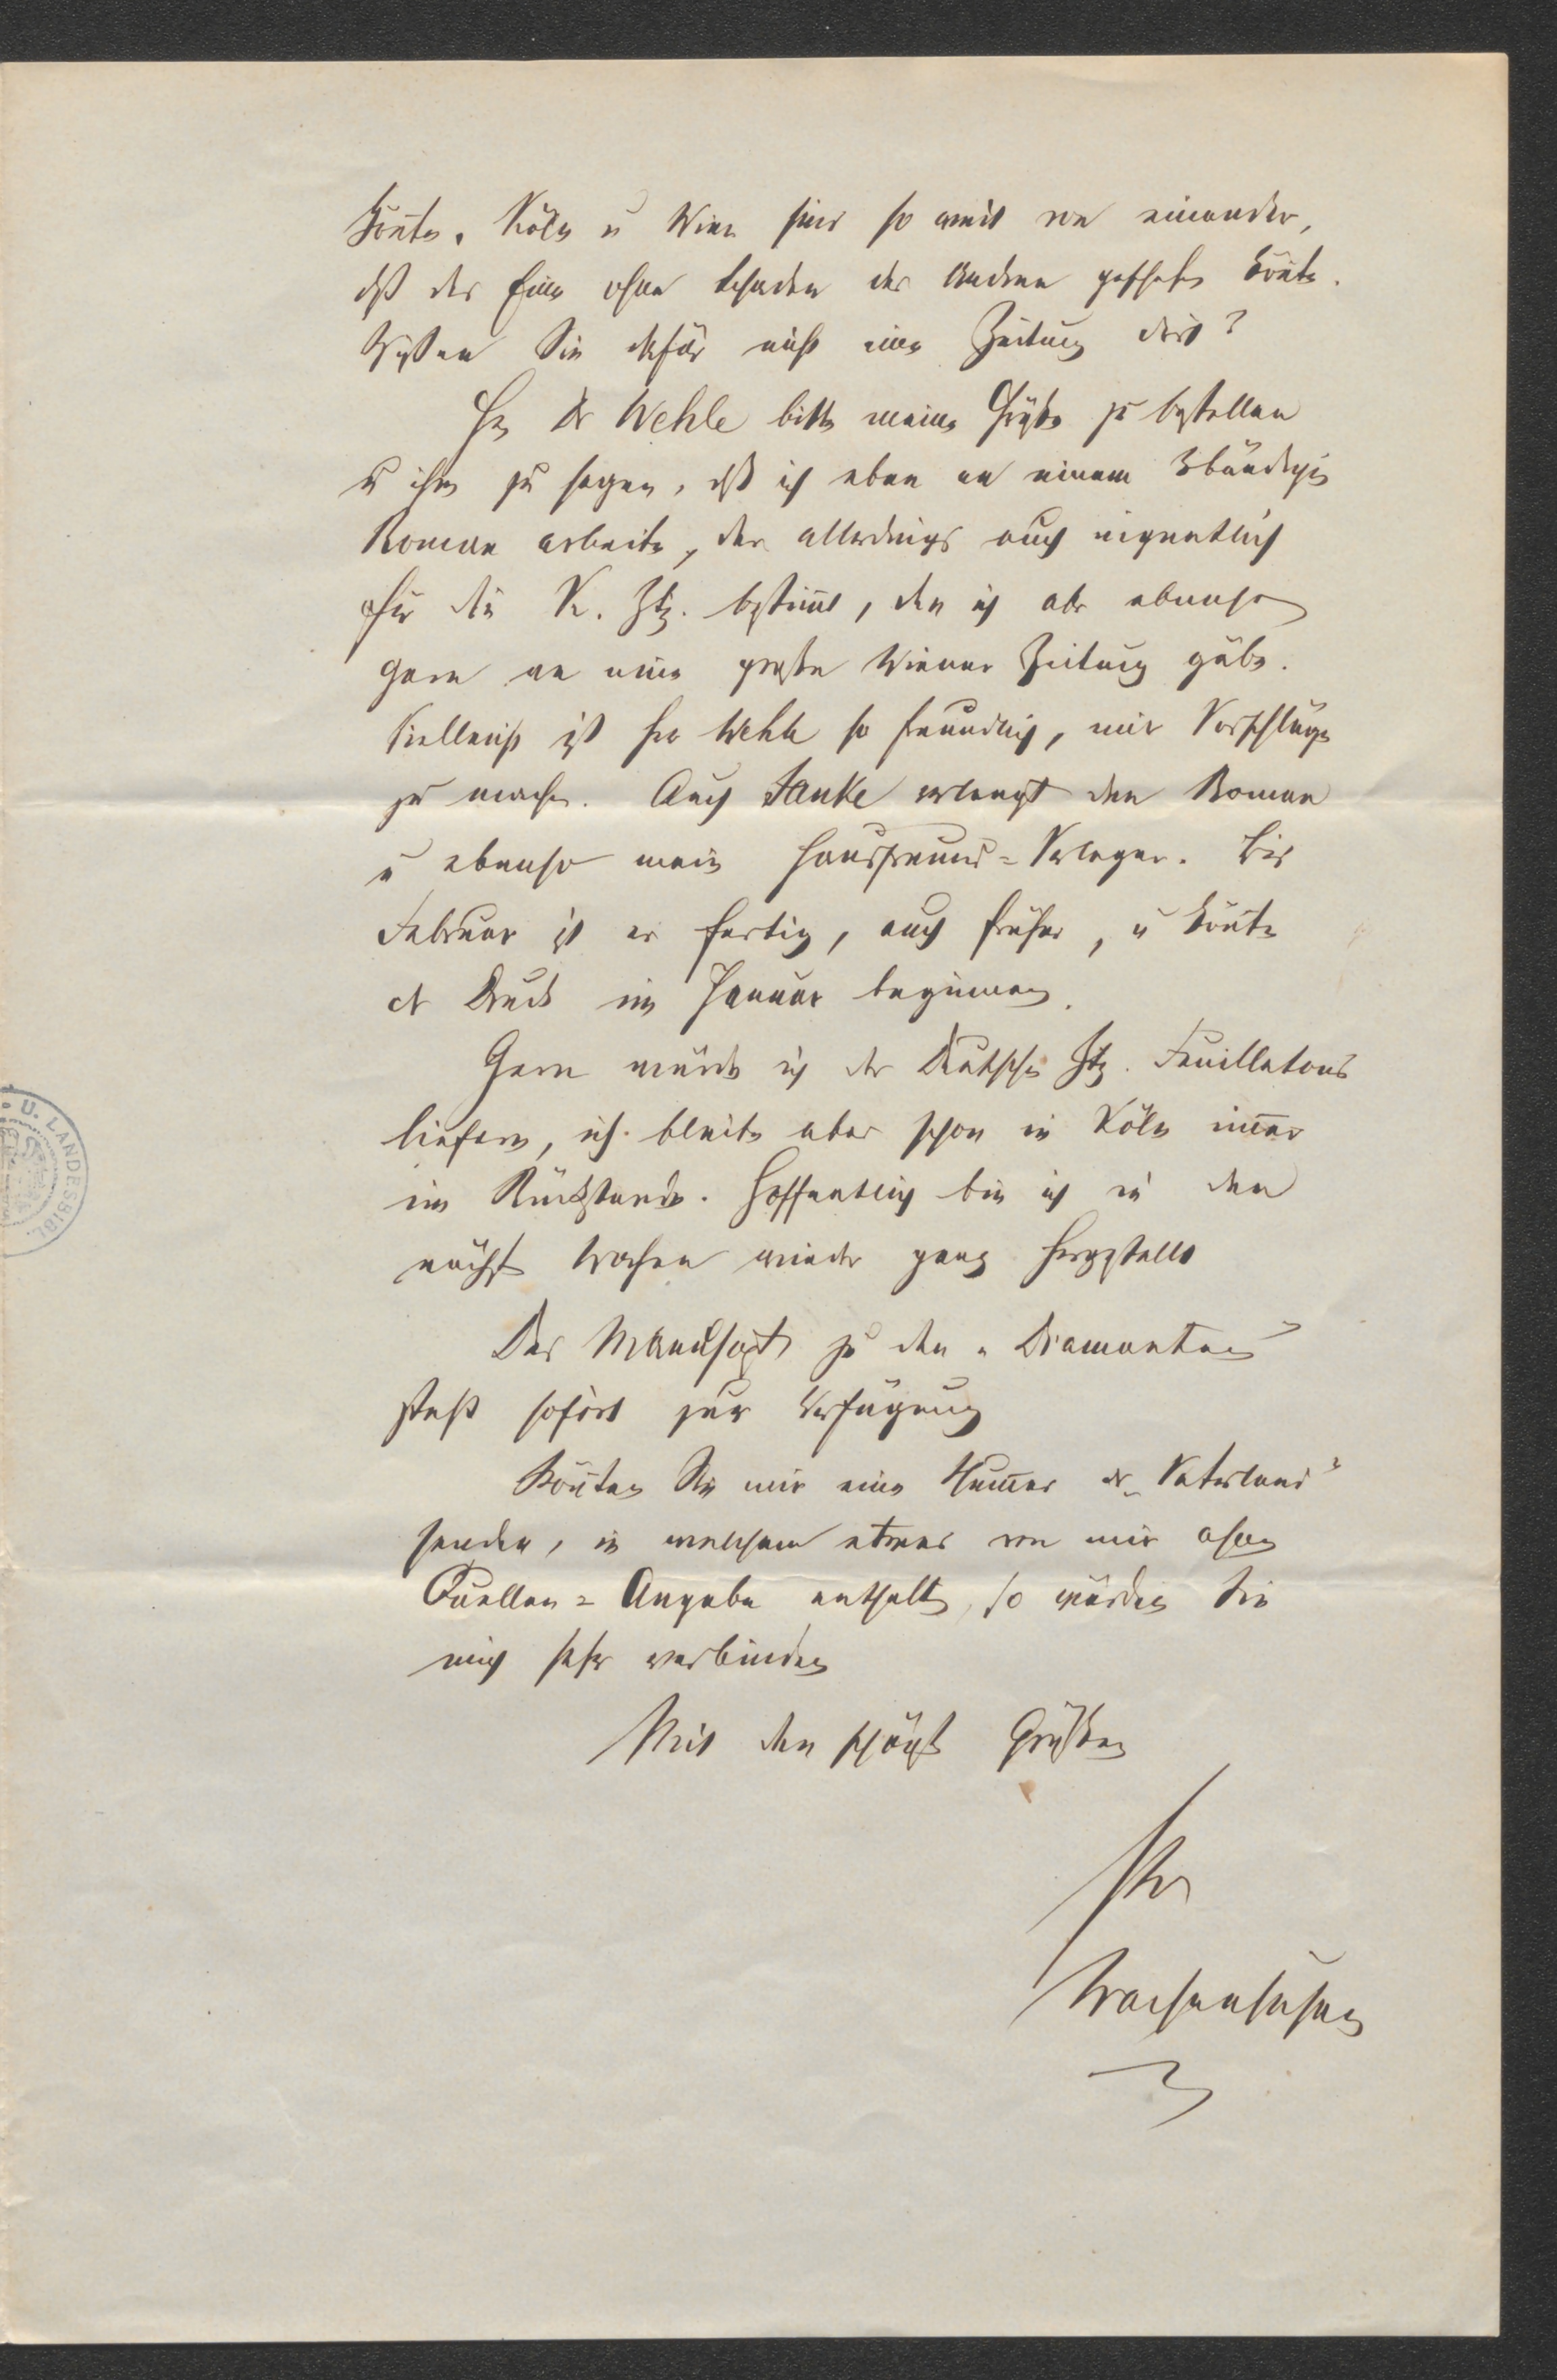 könte. Köln u Wien sind so weit von einander,
dß das Eine ohne Schaden des Anderen geschehen könte.
Wißen Sie dafür nicht eine Zeitung dort?
Hrn Dr Wehle bitte meine Grüße zu bestellen
u ihm zu sagen, dß ich eben an einem 3bändigen
Roman arbeite, der allerdings auch eigentlich
für die K. Ztg. bestimt, den ich aber ebenso
gern an eine große Wiener Zeitung gäbe.
Vielleicht ist Hr Wehle so freundlich, mir Vorschläge
zu machen. Auch Janke verlangt den Roman
u ebenso mein Hausfreund=Verleger. Bis
Februar ist er fertig, auch früher, u könte
der Druck im Januar beginnen.
Gern würde ich der Deutschen Ztg. Feuilletons
liefern, ich bleibe aber schon in Köln imer
im Rückstande. Hoffentlich bin ich in den
nächst Wochen wieder ganz hergestellt
Das Manuscript zu den "Diamanten"
steht sofort zur Verfügung
Könten Sie mir eine Numer des "Vaterland"
senden, in welchem etwas von mir ohne
Quellen=Angabe enthalten, so würden Sie
mich sehr verbinden
Mit den schönst Grüßen
Ihr
Wachenhusen
U. LANDESBIBL.